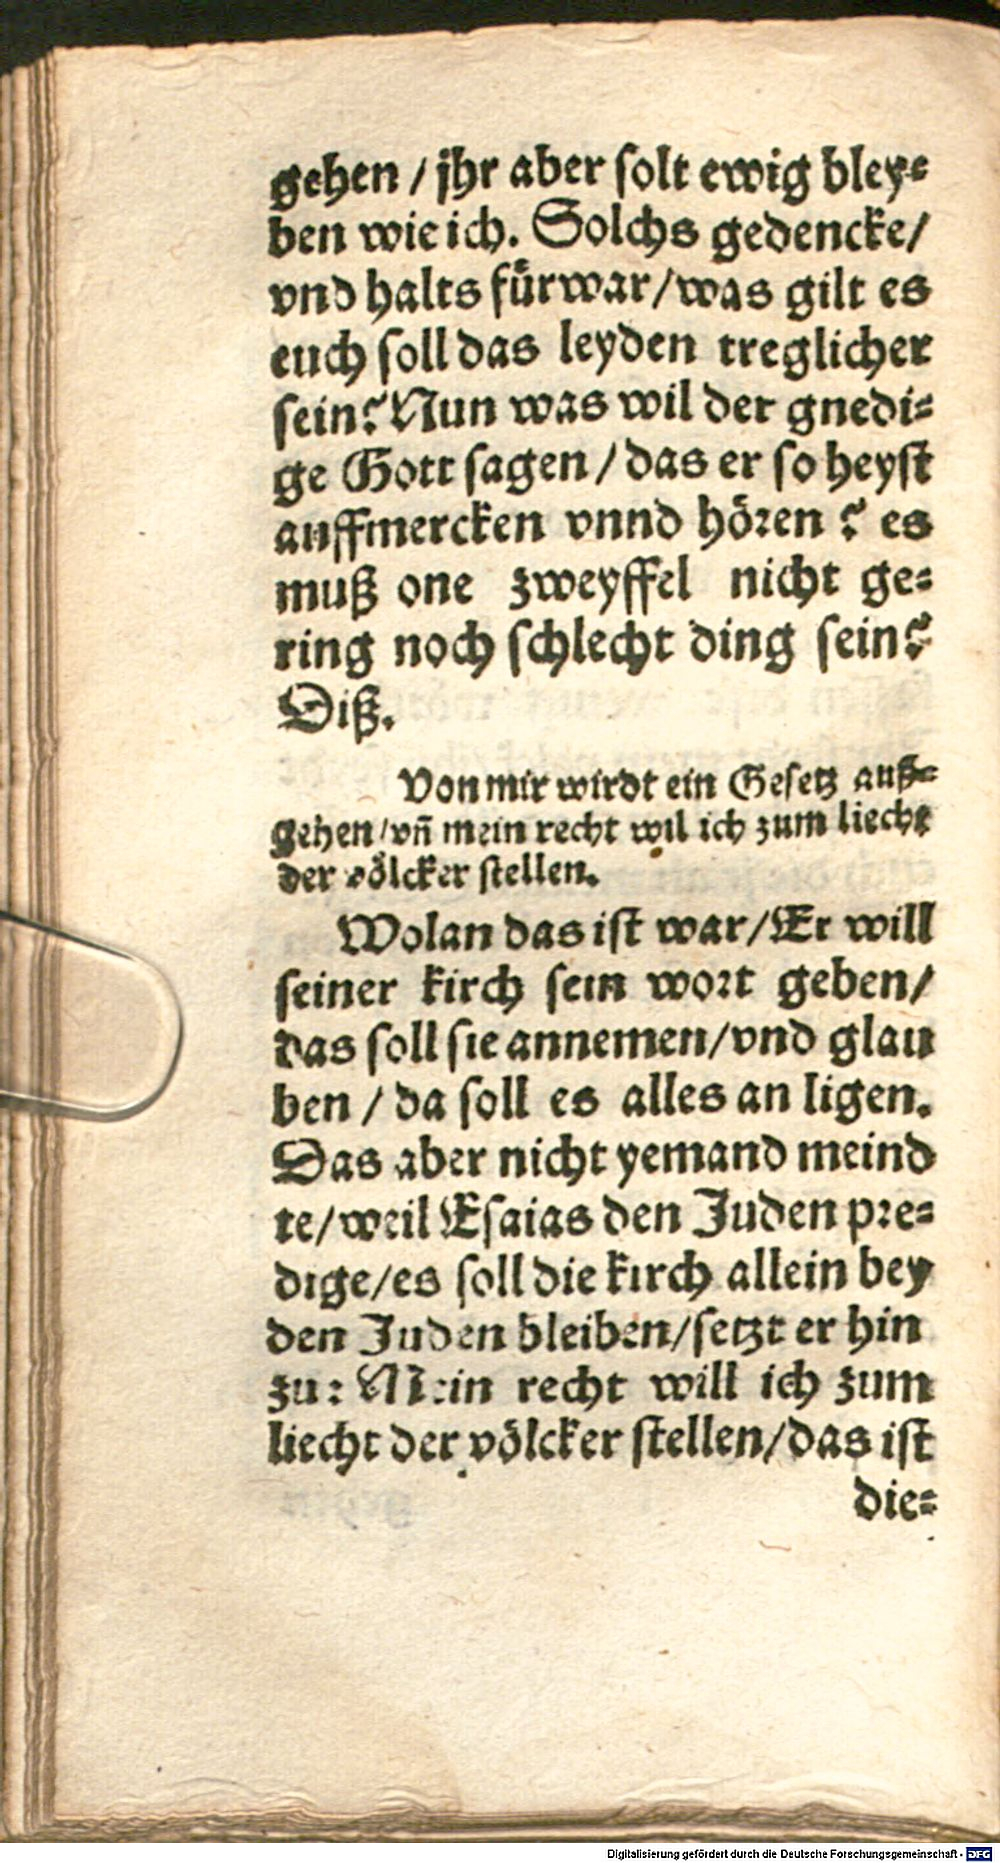 gehen / jhr aber ſolt ewig bley⸗
ben wie ich. Solchs gedencke /
vnd halts fuͤrwar / was gilt es
euch ſoll das leyden treglicher
ſein? Nun was wil der gnedi⸗
ge Gott ſagen / das er ſo heyſt
auffmercken vnnd hoͤꝛen? es
muß one zweyffel nicht ge⸗
ring noch ſchlecht ding ſein?
Diß.
Von mir wirdt ein Geſetz auß⸗
gehen / vn̄ mein recht wil ich zum liecht
der voͤlcker ſtellen.
Wolan das iſt war / Er will
ſeiner kirch ſein woꝛt geben /
das ſoll ſie annemen / vnd glau
ben / da ſoll es alles an ligen.
Das aber nicht yemand meind
te / weil Eſaias den Juden pꝛe⸗
dige / es ſoll die kirch allein bey
den Juden bleiben / ſetzt er hin
zu: Mein recht will ich zum
liecht der voͤlcker ſtellen / das iſt
die⸗
Digitalisierung gefördert durch die Deutsche Forschungsgemeinschaft - DFG